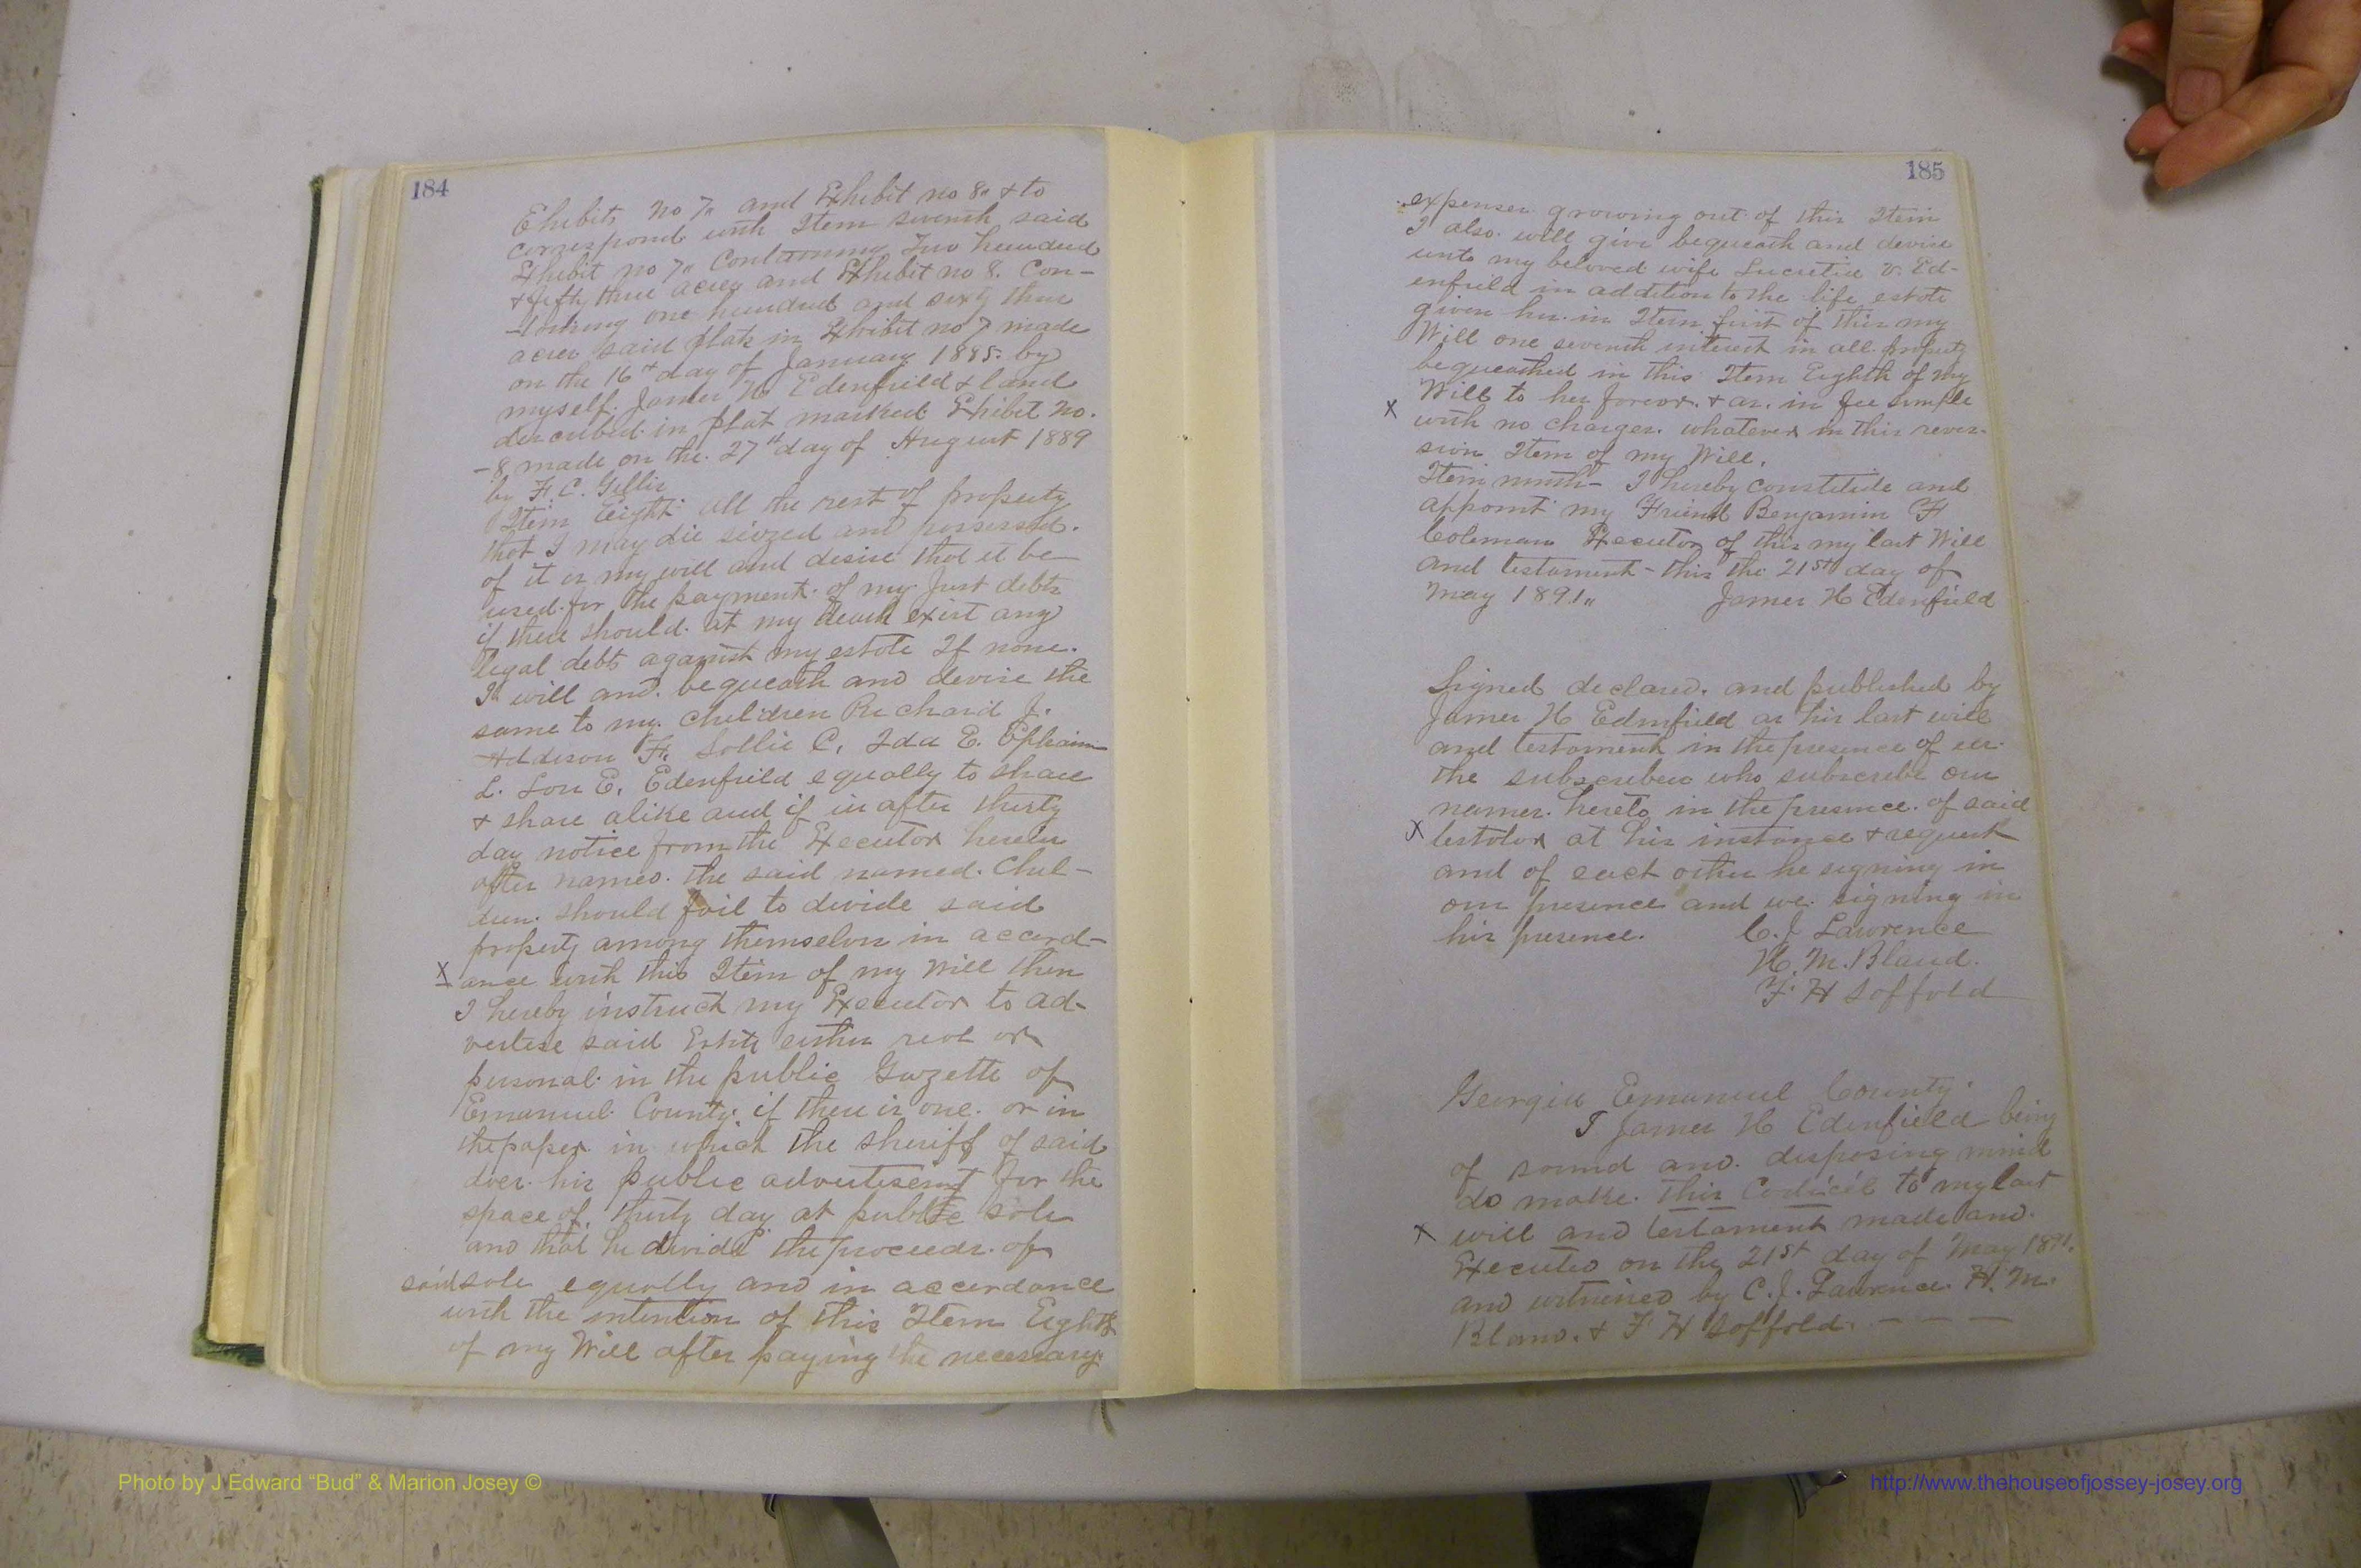 184
Ehibits no 7" and Exhibit no 8" & to
correspond with Item seventh said
Exhibit no 7" Containing Two hundred
& fifty three acres and Exhibit no 8. Con-
-taining one hundred and sixty three
acres said plat in Exhibit no 7 made
on the 16th day of January 1885. by
myself. James H Edenfield & land
described in plat marked Exhibit No.
-8 made on the. 27th day of August 1889
by F. C.
Item Eight. all the rest of property
that I may die siezed and possessed.
of it is my will and desire that it be
used for the payment. of my just debts
if there should. at my death exist any
legal debts against my estate If none.
I will and. bequeath and devise the
same to my. children Richard J.
Addison F. Sollie C, Ida E. Ephraim
L. Lou E. Edenfield equally to share
& share alike and if in after thirty
day notice from the Executor herein
after names. the said named. Chil-
dren. should fail to divide said
property among themselves in accord-
X ance with this Item of my Will then
I hereby instruct my Executor to ad-
vertise said Estate either real or
personal. in the public Gazette of
Emanuel County. if there is one. or in
the paper in which the sheriff of said
does his public advertisemt for the
space of. thirty day at public sale
and that he divide the proceeds. of
said sale equally and in accordance
with the intention of this Item Eighth
of my Will after paying the necessary
185
expenses growing out of this Item
I also. will give bequeath and devise
unto my beloved wife Lucretia V. Ed-
enfield in addition to the life estate
given her in Item first of this my
Will one seventh interest in all property
bequeathed in this Item Eighth of my
Will to her forever. & as. in fee simple
X with no charges. whatever in this rever-
sion Item of my Will.
Item ninth- I hereby constitute and
appoint my Friend Benjamin F
Coleman Executor of this my last Will
and testament - this the 21st day of
May 1891" James H Edenfield
Signed declared. and published by
James H Edenfield as his last will
and testament in the presence of us.
the subscribers who subscribe our
names. hereto in the presence. of said
X testator at his instance & request
and of each other he signing in
our presence and we. signing in
his presence. C. J Lawrence
H. M. Bland.
F. H Soffold
Georgia Emanuel County.
I James H Edenfield being
of sound and. disposing mind
do make. this Codicil to my last
X will and testament made and.
Executed on the 21st day of May 1891.
and witnessed by C. J. Lawrence. H. M.
Bland. & F H Soffold. - - -
Photo by J Edward "Bud" & Marion Josey ©
http://www.thehouseofjossey-josey.org